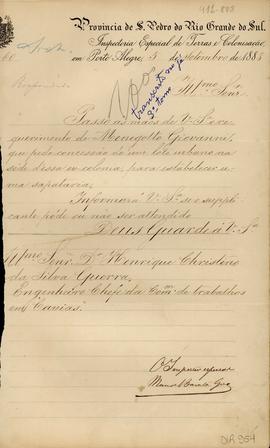 412.888
Provincia de S. Pedro do Rio Grande do Sul.
Inspectoria Especial de Terras e Colonisação
em Porto Alegre, 5 de Setembro de 1885
Illmo. Senr.
Passo ás mãos de V. Sª. o re-
querimento de Menegotto Giovanni,
que pede concessão de um lote urbano na
séde dessa ex-colonia, para estabelecer u-
ma sapataria.
Informará V. Sª. se o suppli-
cante póde ou não ser attendido.
Deus Guarde á V. Sª.
Illmo Senr. Dr. Henrique Christino
da Silva Guerra.
Engenheiro Chefe da Comm. de trabalhos
em Caxias.
O Inspector especial
Manoel
DIR 954